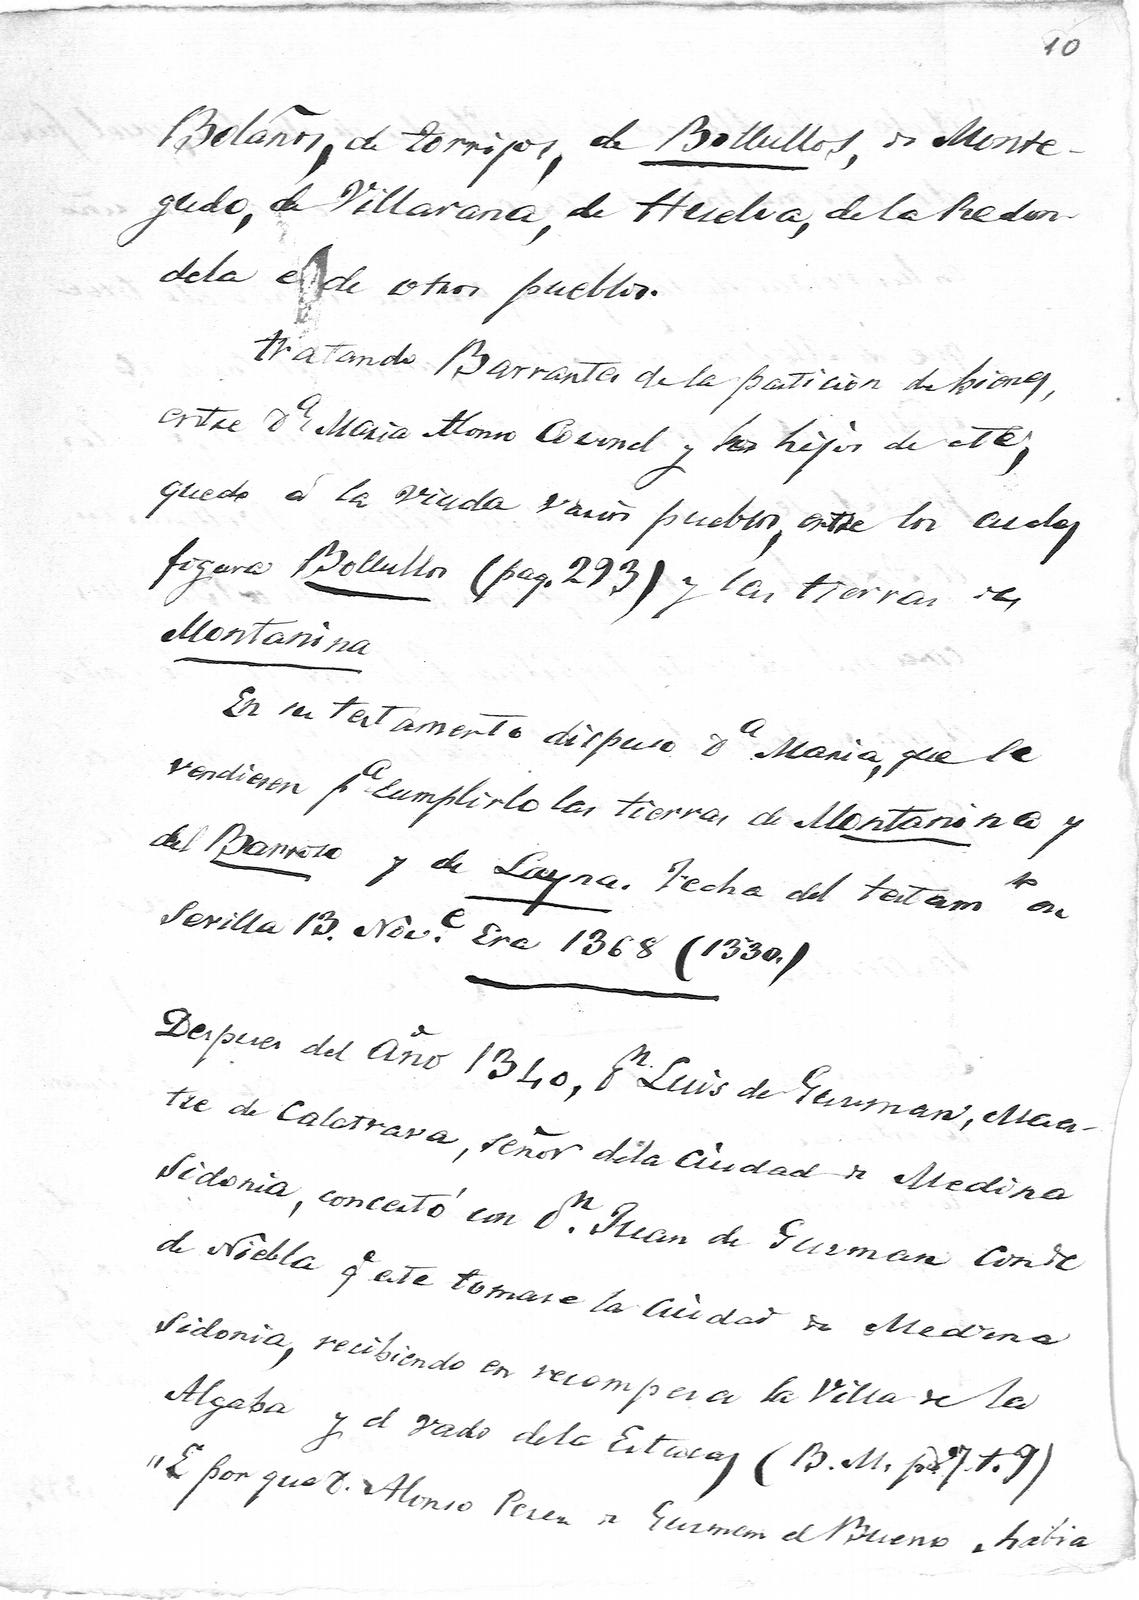 10
Bolaños, de torrijos, de Bollullos, de Monte-
gudo, de Villarana, de Huelva, de la Redon-
dela e de otros pueblos.
tratando Barrantes de la particion de bienes,
entre Dª Maria Alonso Coronel y los hijos de este,
quedo á la viuda varios pueblos, entre los cuales
figura Bollullos (pag. 293) y las tierras de
Montanina
En su testamento dispuso Dª Maria, que se
vendiesen pª cumplirlo las tierras de Montanina y
del Barroso y de Layna. Fecha del testamto en
Sevilla 13. Nov.e Era 1368 (1330.)
Despues del Año 1340, Dn Luis de Guzman, Maes-
tre de Calatrava, señor de la Ciudad de Medina
Sidonia, concertó con Dn. Juan de Guzman Conde
de Niebla q.e este tomase la Ciudad de Medina
Sidonia, recibiendo en recompensa la Villa de la
Algaba y el vado de la Estacas (B. M. t. 9)
"E por que D. Alonso Perez de Guzman el Bueno, habia